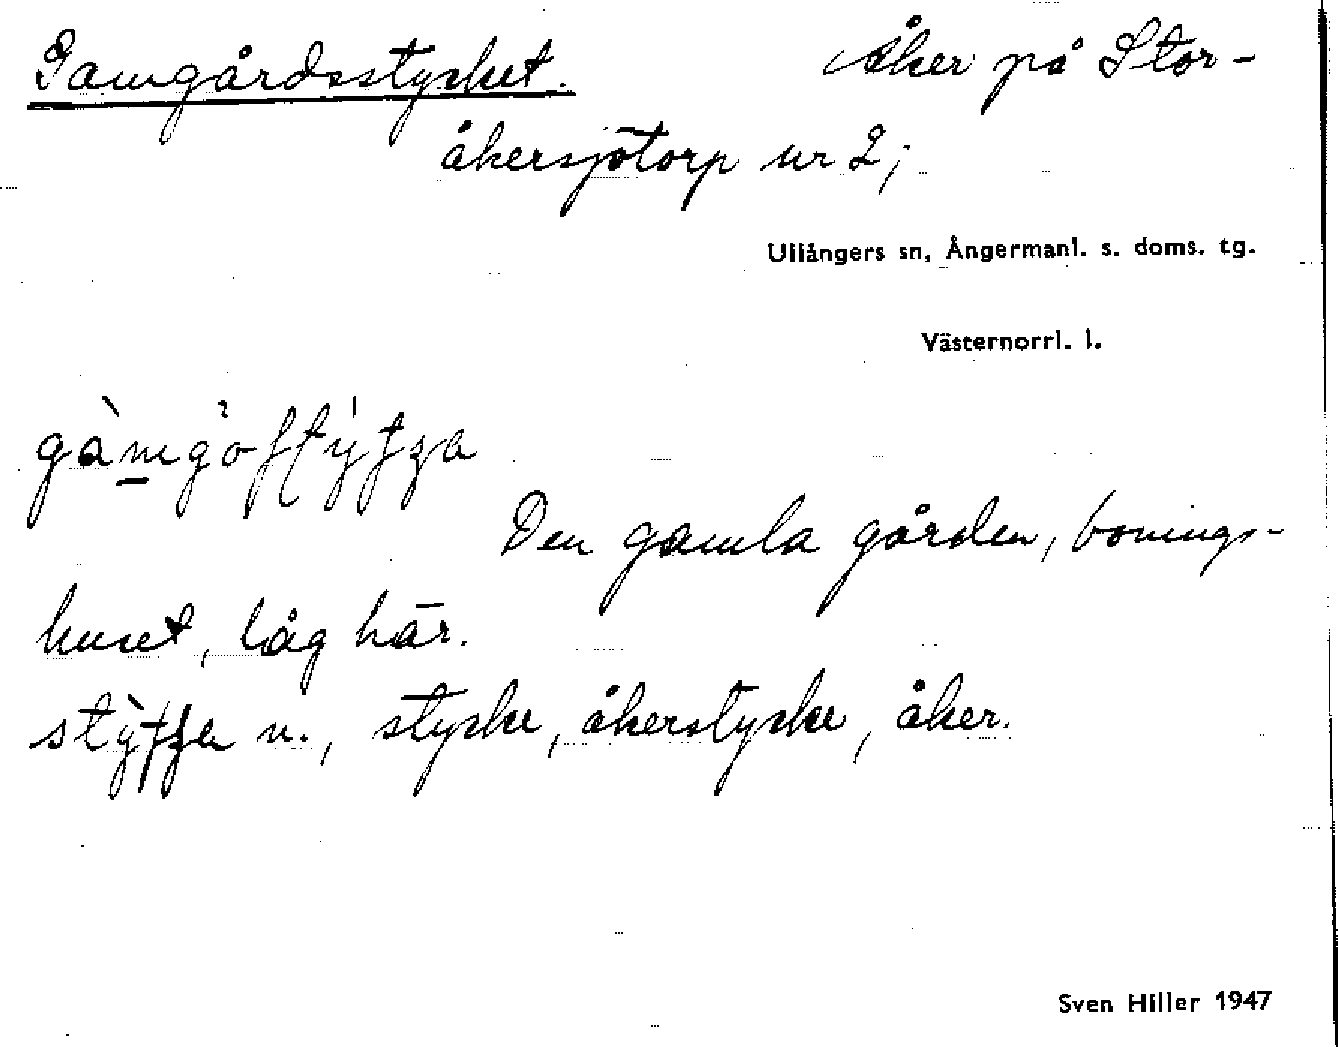 Gamgårdsstycket. Åker på Stor-
åkersjötorp nr 2;
Ullångers sn, Ångermanl. s. doms. tg.
Västernorrl. l.
Den gamla gården, bonings-
huset, låg här.
n., stycke, åkerstycke, åker.
Sven Hiller 1947